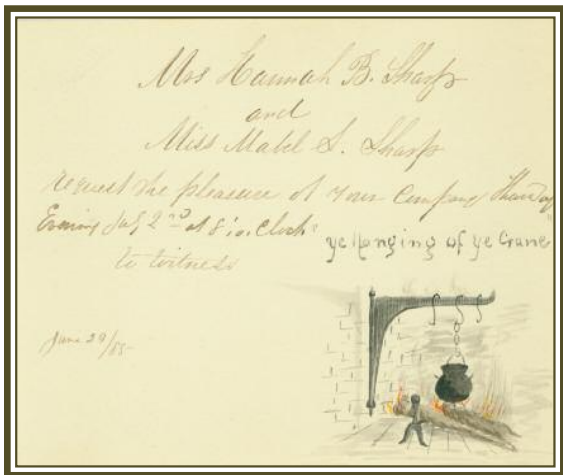 Mrs Hannah B. Sharp
and
Miss Mabel S. Sharp
request the pleasure of your Company Thursday
Evening July 2nd at 8 'o. Clock
to witness
"ye Hanging of ye Crane"
June 29/85